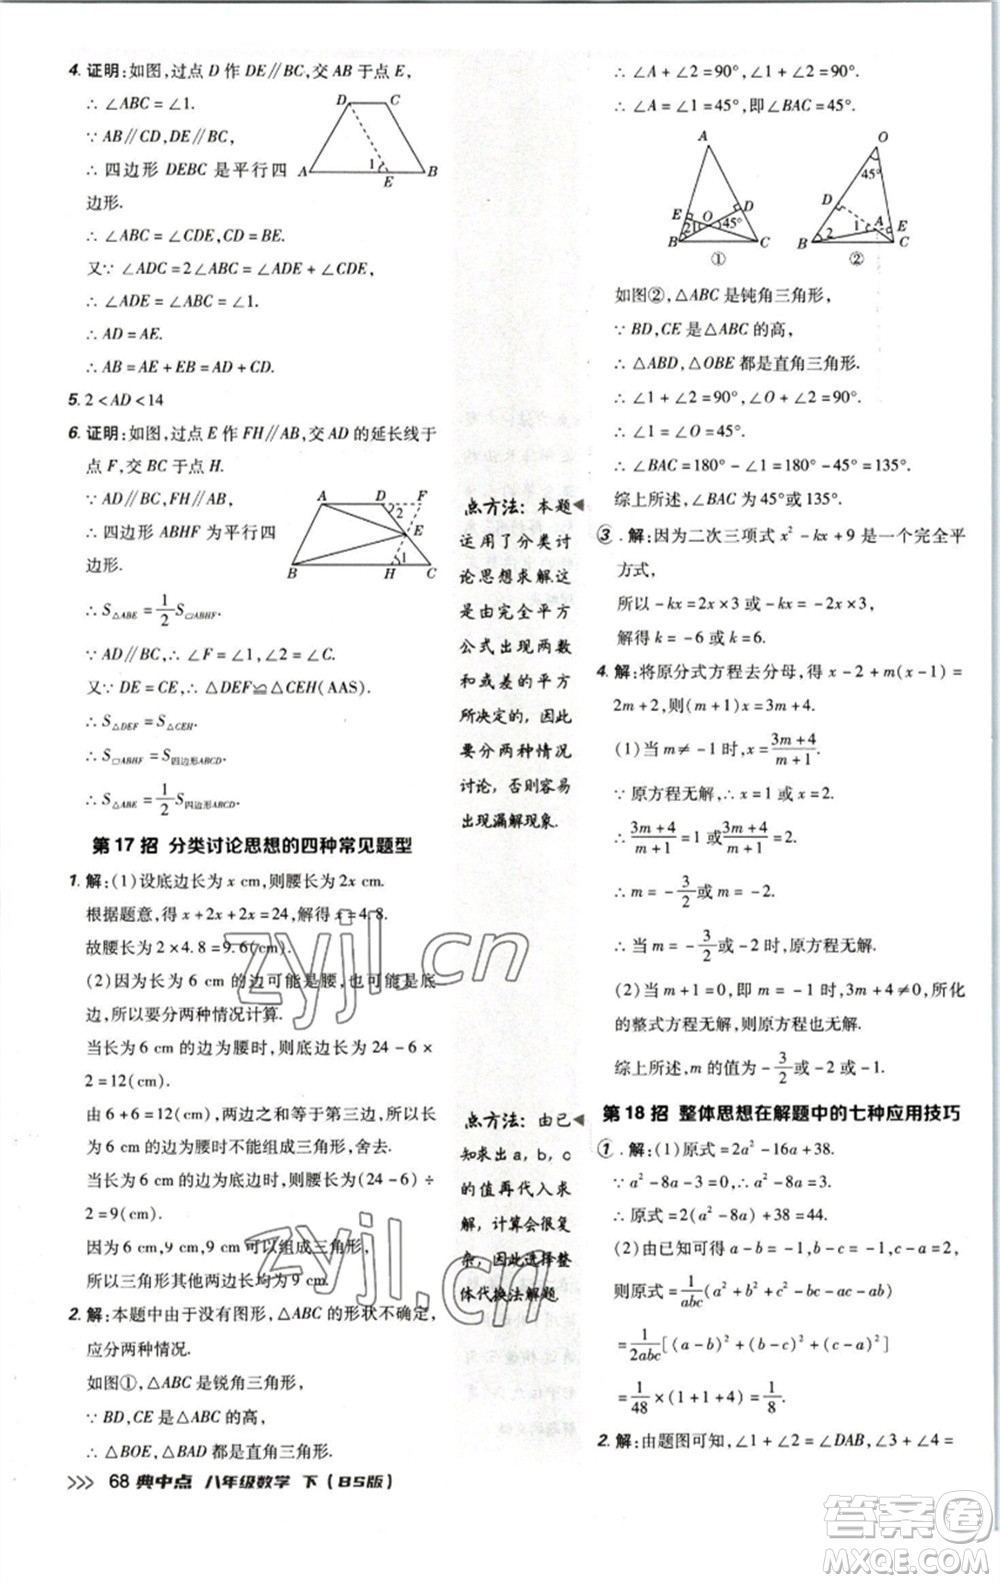 4. 证明:如图,过点 D 作 DE∥BC,交 AB 于点 E,
∴ ∠ABC = ∠1.
∵ AB∥CD,DE∥BC,
∴ 四边形 DEBC 是平行四
边形.
∴ ∠ABC = ∠CDE,EB = CD.
又∵ ∠ADC = 2∠ABC = ∠ADE + ∠CDE,
∴ ∠ADE = ∠1.
∴ AD = AE.
∴ AB = AE + EB = AD + CD.
D C
A 1 E B
5. 2 < AD < 14
6. 证明:如图,过点 E 作 FH∥AB,交 AD 的延长线于
点 F,交 BC 于点 H.
∵ AD∥BC,FH∥AB,
∴ 四边形 ABHF 为平行四
边形.
∴ S△ABE = 1/2 S▱ABHF.
∵ AD∥BC,∴ ∠F = ∠1,∠2 = ∠C.
又∵ DE = CE,∴ △DEF≌△CEH(AAS).
∴ S△DEF = S△CEH.
∴ S▱ABHF = S四边形ABCD.
∴ S△ABE = 1/2 S四边形ABCD.
A D F
2
E
1
B H C
第 17 招 分类讨论思想的四种常见题型
1. 解:(1)设底边长为 x cm,则腰长为 2x cm.
根据题意,得 x + 2x + 2x = 24,解得 x = 4.8.
故腰长为 2 × 4.8 = 9.6(cm).
(2)因为长为 6 cm 的边可能是腰,也可能是底
边,所以要分两种情况计算.
当长为 6 cm 的边为腰时,则底边长为 24 - 6 ×
2 = 12(cm).
由 6 + 6 = 12,两边之和等于第三边,可知以
6 cm 的边为腰时不能组成三角形,故舍去.
当长为 6 cm 的边为底边时,则腰长为(24 - 6) ÷
2 = 9(cm).
因为 6 cm,9 cm,9 cm 可以组成三角形,
所以三角形其他两边长均为 9 cm.
2. 解:本题中由于没有图形,△ABC 的形状不确定,
应分两种情况.
如图①,△ABC 是锐角三角形,
∵ BD,CE 是△ABC 的高,
∴ △BOE,△BAD 都是直角三角形.
>>> 68 典中点 八年级数学 下(BS版)
点方法: 本题
运用了分类讨
论思想求解,这
是由完全平方
公式出现两数
和或差的平方
所决定的,因此
要分两种情况
讨论,否则容易
出现漏解现象.
点方法: 由已
知求出 a, b, c
的值再代入求
解,计算会很复
杂,因此选择整
体代换法解题.
∴ ∠A + ∠2 = 90°,∠1 + ∠2 = 90°.
∴ ∠A = ∠1 = 45°,即∠BAC = 45°.
A
E O D
2 1 45°
B C
①
O
45°
D
2 1 A E
B C
②
如图②,△ABC 是钝角三角形,
∵ BD,CE 是△ABC 的高,
∴ △BAD,△OBE 都是直角三角形.
∴ ∠1 + ∠2 = 90°,∠2 + ∠O = 90°.
∴ ∠1 = ∠O = 45°.
∴ ∠BAC = 180° - ∠1 = 180° - 45° = 135°.
综上所述,∠BAC 为 45°或 135°.
3. 解:因为二次三项式 x² - kx + 9 是一个完全平
方式,
所以 -kx = 2x × 3 或 -kx = -2x × 3,
解得 k = -6 或 k = 6.
4. 解:将原分式方程去分母,得 x - 2 + m(x - 1) =
2m + 2,则(m + 1)x = 3m + 4.
(1)当 m ≠ -1 时,x = (3m + 4)/(m + 1).
∵ 原方程无解,∴ x = 1 或 x = 2.
∴ (3m + 4)/(m + 1) = 1 或 (3m + 4)/(m + 1) = 2.
∴ m = -3/2 或 m = -2.
∴ 当 m = -3/2 或 m = -2 时,原方程无解.
(2)当 m + 1 = 0,即 m = -1 时,3m + 4 ≠ 0,所化
的整式方程无解,则原方程无解.
综上所述,m 的值为 -3/2 或 -2 或 -1.
第 18 招 整体思想在解题中的七种应用技巧
1. 解:(1)原式 = 2a² - 16a + 38.
∵ a² - 8a - 3 = 0,∴ a² - 8a = 3.
∴ 原式 = 2(a² - 8a) + 38 = 44.
(2)由已知可得 a - b = -2,b - c = 1,a - c = -1,
则原式 = 1/abc (a² + b² + c² - bc - ac - ab)
= 1/2abc [(a - b)² + (b - c)² + (a - c)²]
= 1/48 × (4 + 1 + 1) = 1/8.
2. 解:由题图可知,∠1 = ∠DAB,∠2 + ∠CAB =
zyjl.cn
zyjl.cn
答案圈
MXQE.COM